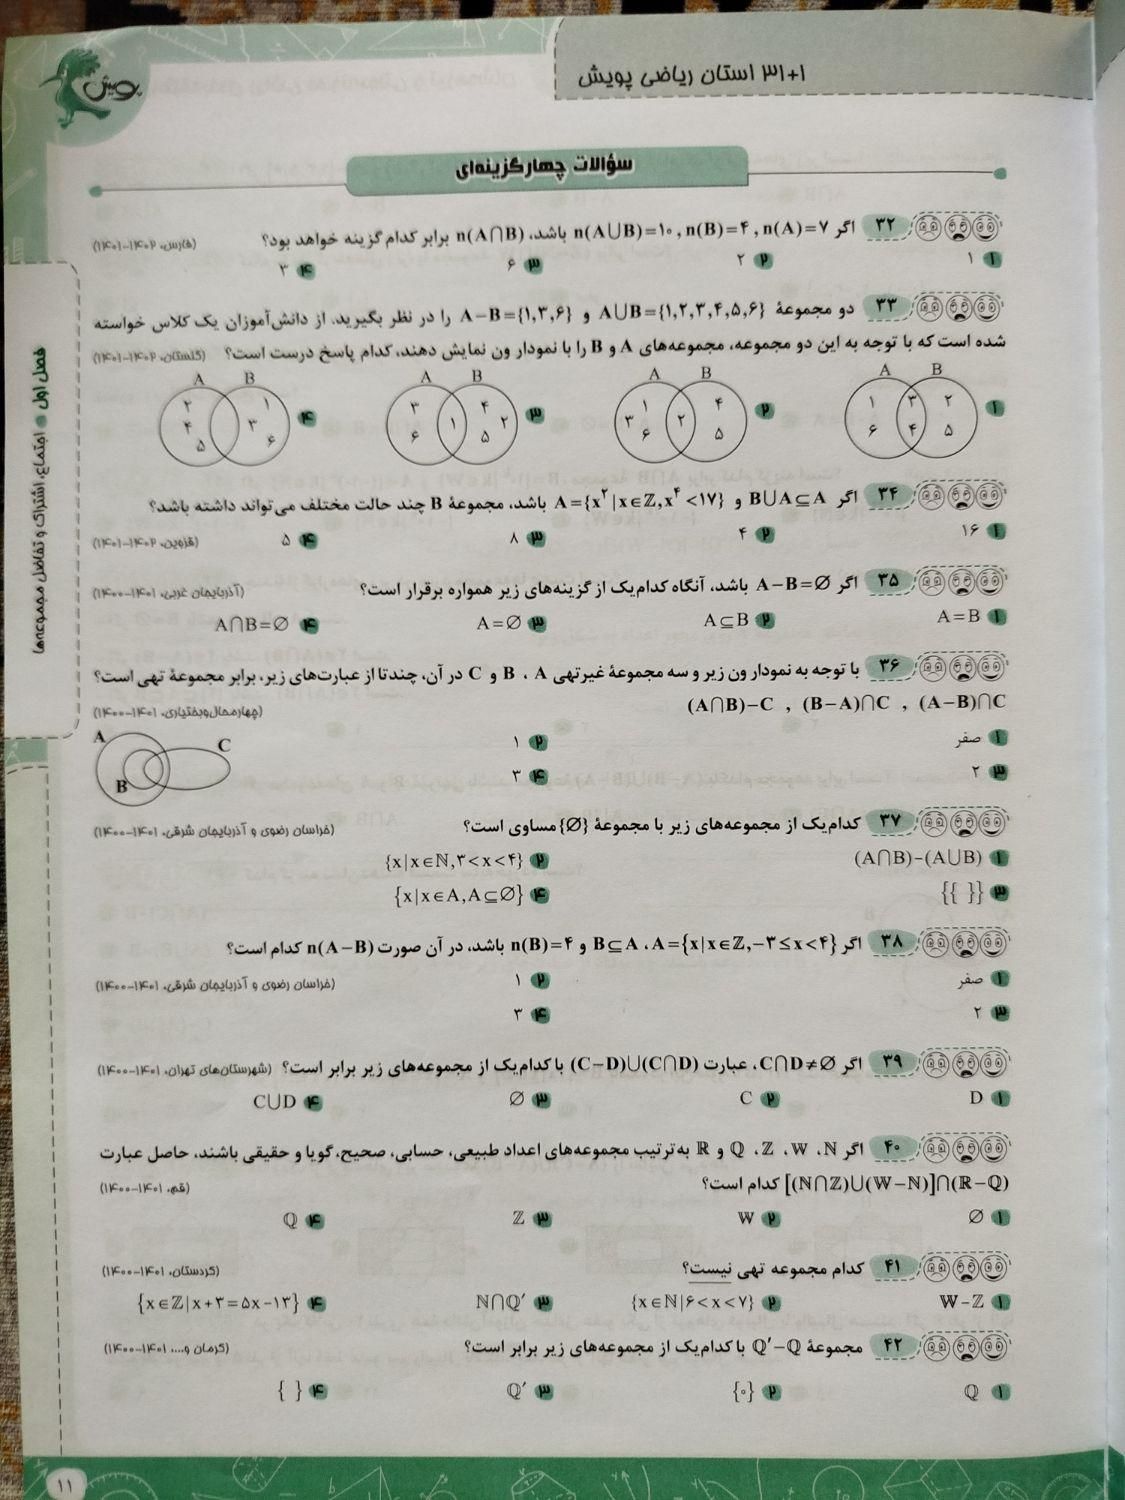 ۳۱+۱ استان ریاضی پویش
پویش
سؤالات چهارگزینه‌ای
۳۲ اگر n(A)=۷ , n(B)=۴ , n(A∪B)=۱۰ باشد، n(A∩B) برابر کدام گزینه خواهد بود؟ (فارس، ۱۴۰۲-۱۴۰۱)
۱ ۱ ۲ ۲ ۳ ۶ ۴ ۳
۳۳ دو مجموعهٔ A∪B={۱,۲,۳,۴,۵,۶} و A−B={۱,۳,۶} را در نظر بگیرید. از دانش‌آموزان یک کلاس خواسته
شده است که با توجه به این دو مجموعه، مجموعه‌های A و B را با نمودار ون نمایش دهند، کدام پاسخ درست است؟ (گلستان، ۱۴۰۲-۱۴۰۱)
۱ A B ۱ ۶ ۳ ۴ ۲ ۵
۲ A B ۱ ۳ ۶ ۲ ۴ ۵
۳ A B ۳ ۶ ۱ ۴ ۲ ۵
۴ A B ۲ ۴ ۵ ۱ ۳ ۶
۳۴ اگر B∪A⊆A و A={x²|x∈ℤ,x⁴<۱۷} باشد، مجموعهٔ B چند حالت مختلف می‌تواند داشته باشد؟
۱ ۱۶ ۲ ۴ ۳ ۸ ۴ ۵ (قزوین، ۱۴۰۲-۱۴۰۱)
۳۵ اگر A−B=∅ باشد، آنگاه کدام‌یک از گزینه‌های زیر همواره برقرار است؟ (آذربایجان غربی، ۱۴۰۱-۱۴۰۰)
۱ A=B ۲ A⊆B ۳ A=∅ ۴ A∩B=∅
۳۶ با توجه به نمودار ون زیر و سه مجموعهٔ غیرتهی A ، B و C در آن، چندتا از عبارت‌های زیر، برابر مجموعهٔ تهی است؟
(A∩B)−C , (B−A)∩C , (A−B)∩C (چهارمحال‌وبختیاری، ۱۴۰۱-۱۴۰۰)
۱ صفر ۲ ۱
۳ ۲ ۴ ۳
A B C
۳۷ کدام‌یک از مجموعه‌های زیر با مجموعهٔ {∅} مساوی است؟ (خراسان رضوی و آذربایجان شرقی، ۱۴۰۱-۱۴۰۰)
۱ (A∩B)−(A∪B) ۲ {x|x∈ℕ,۳<x<۴}
۳ {{ }} ۴ {x|x∈A,A⊆∅}
۳۸ اگر A={x|x∈ℤ,−۳≤x<۴} ، B⊆A و n(B)=۴ باشد، در آن صورت n(A−B) کدام است؟
۱ صفر ۲ ۱ (خراسان رضوی و آذربایجان شرقی، ۱۴۰۱-۱۴۰۰)
۳ ۲ ۴ ۳
۳۹ اگر C∩D≠∅، عبارت (C−D)∪(C∩D) با کدام‌یک از مجموعه‌های زیر برابر است؟ (شهرستان‌های تهران، ۱۴۰۱-۱۴۰۰)
۱ D ۲ C ۳ ∅ ۴ C∪D
۴۰ اگر ℕ، W، ℤ، ℚ و ℝ به‌ترتیب مجموعه‌های اعداد طبیعی، حسابی، صحیح، گویا و حقیقی باشند، حاصل عبارت
[(ℕ∩ℤ)∪(W−ℕ)]∩(ℝ−ℚ) کدام است؟ (قم، ۱۴۰۱-۱۴۰۰)
۱ ∅ ۲ W ۳ ℤ ۴ ℚ
۴۱ کدام مجموعه تهی نیست؟ (کردستان، ۱۴۰۱-۱۴۰۰)
۱ W−ℤ ۲ {x∈ℕ|۶<x<۷} ۳ ℕ∩ℚ′ ۴ {x∈ℤ|x+۳=۵x−۱۳}
۴۲ مجموعهٔ ℚ′−ℚ با کدام‌یک از مجموعه‌های زیر برابر است؟ (کرمان و...، ۱۴۰۱-۱۴۰۰)
۱ ℚ ۲ {۰} ۳ ℚ′ ۴ { }
فصل اول اجتماع، اشتراک و تفاضل مجموعه‌ها
۱۱